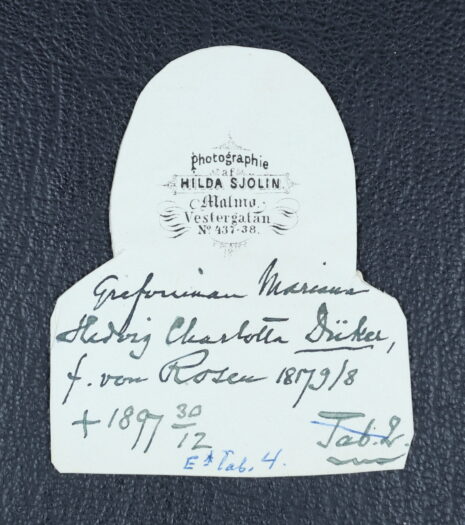 photographie
af
HILDA SJÖLIN.
Malmö.
Vestergatan
No 437-38.
Grefvinnan Mariana
Hedvig Charlotta Düker,
f. von Rosen 1817 9/8
+ 1897 30/12
Tab. 2.
Tab. 4.